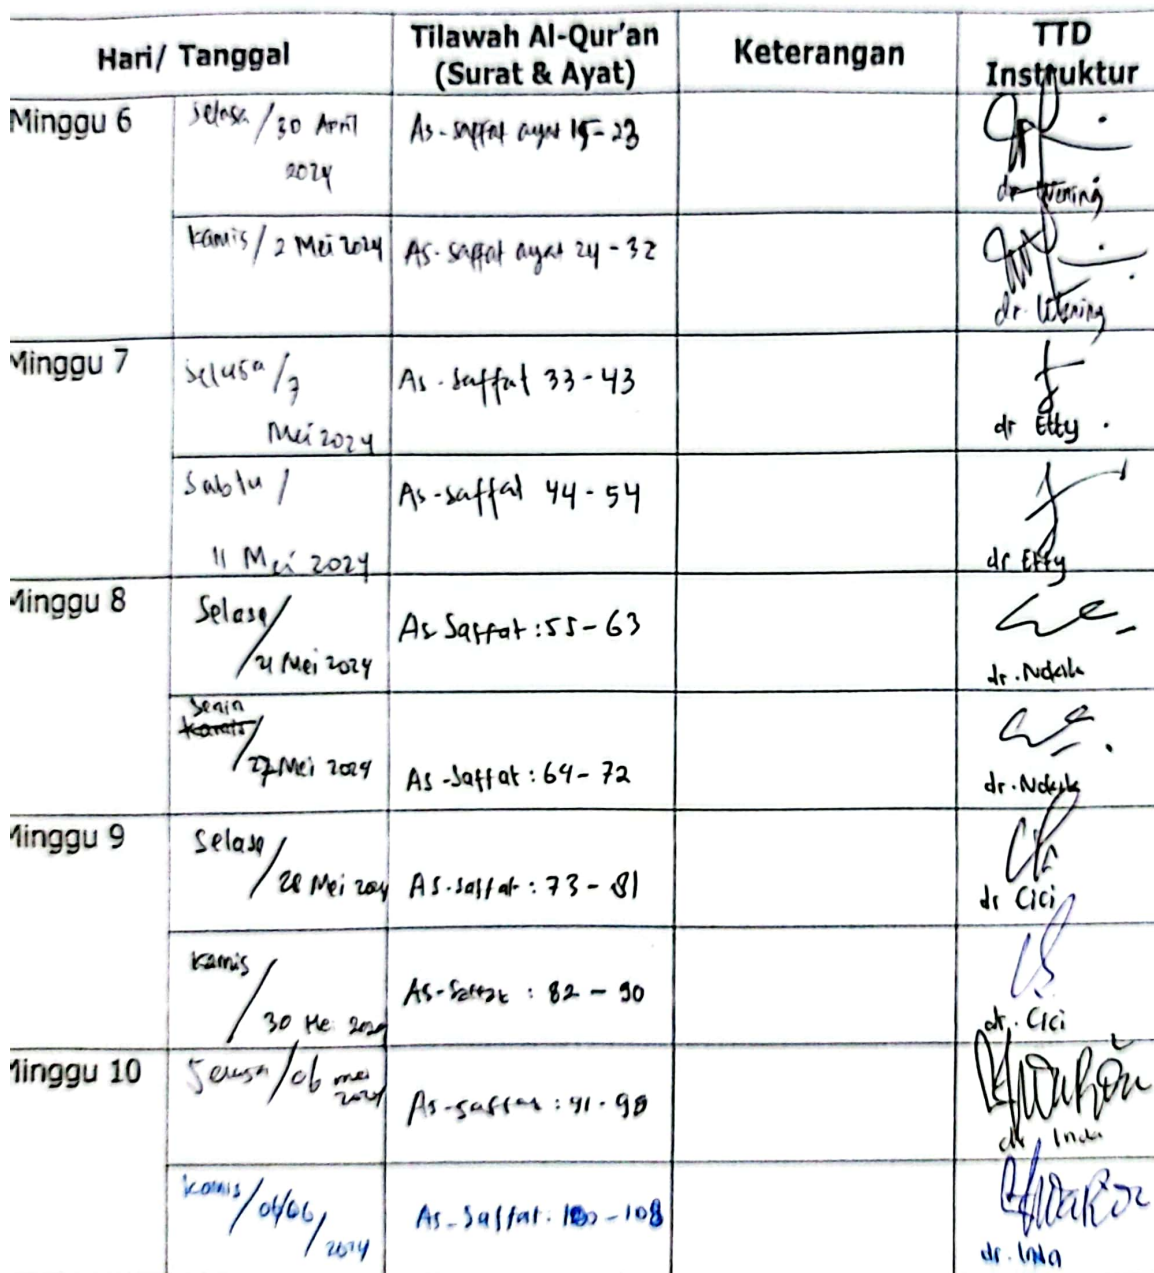 Hari/ Tanggal
Tilawah Al-Qur'an
(Surat & Ayat)
Keterangan
TTD
Instruktur
Minggu 6
Selasa / 30 April
2024
As-saffat ayat 15-23
dr. Wening
Kamis / 2 Mei 2024
As-saffat ayat 24 - 32
dr. Wening
Minggu 7
Selasa / 7
Mei 2024
As-saffat 33-43
dr Etty
Sabtu /
11 Mei 2024
As-saffat 44-54
dr Etty
Minggu 8
Selasa /
21 Mei 2024
As Saffat : 55-63
dr.
Senin
Kamis /
27 Mei 2024
As-Saffat : 64-72
dr.
Minggu 9
Selasa
/ 28 Mei 2024
As-saffat : 73-81
dr Cici
Kamis
/ 30 Mei 2024
As-Saffat : 82 - 90
dr. Cici
Minggu 10
/ 06 mei
2024
As-saffat : 91-98
dr Inda
Kamis / 06/06/
2024
As-Saffat : 100-108
dr. Inda